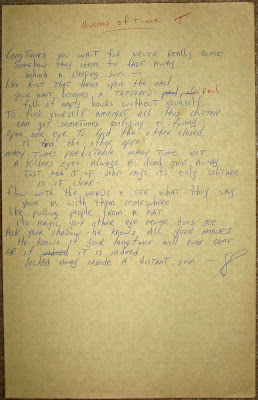 Dreams of Time T
Long Times you wait for never really come
Somehow they seem to fade away
behind a sleeping sun —
Like rust that forms upon the nail
your wait becomes a tattered pail
full of empty hours without yourself
To find yourself amongst all this clutter
can get sometimes confusing + funny
Open one eye to find the other closed
to find the other open
many times predictable many times not
Killers eyes always a dead give away
Just add it up - who says its only solitare
is it clear
flow with the words + see what they say
your in with them somewhere
like pulling people from a hat
its magic your other eye never does see
Ask your shadow - he knows, all your moves
He knows if your longtime will ever come
or if it is indeed
a locked away inside a distant sun —